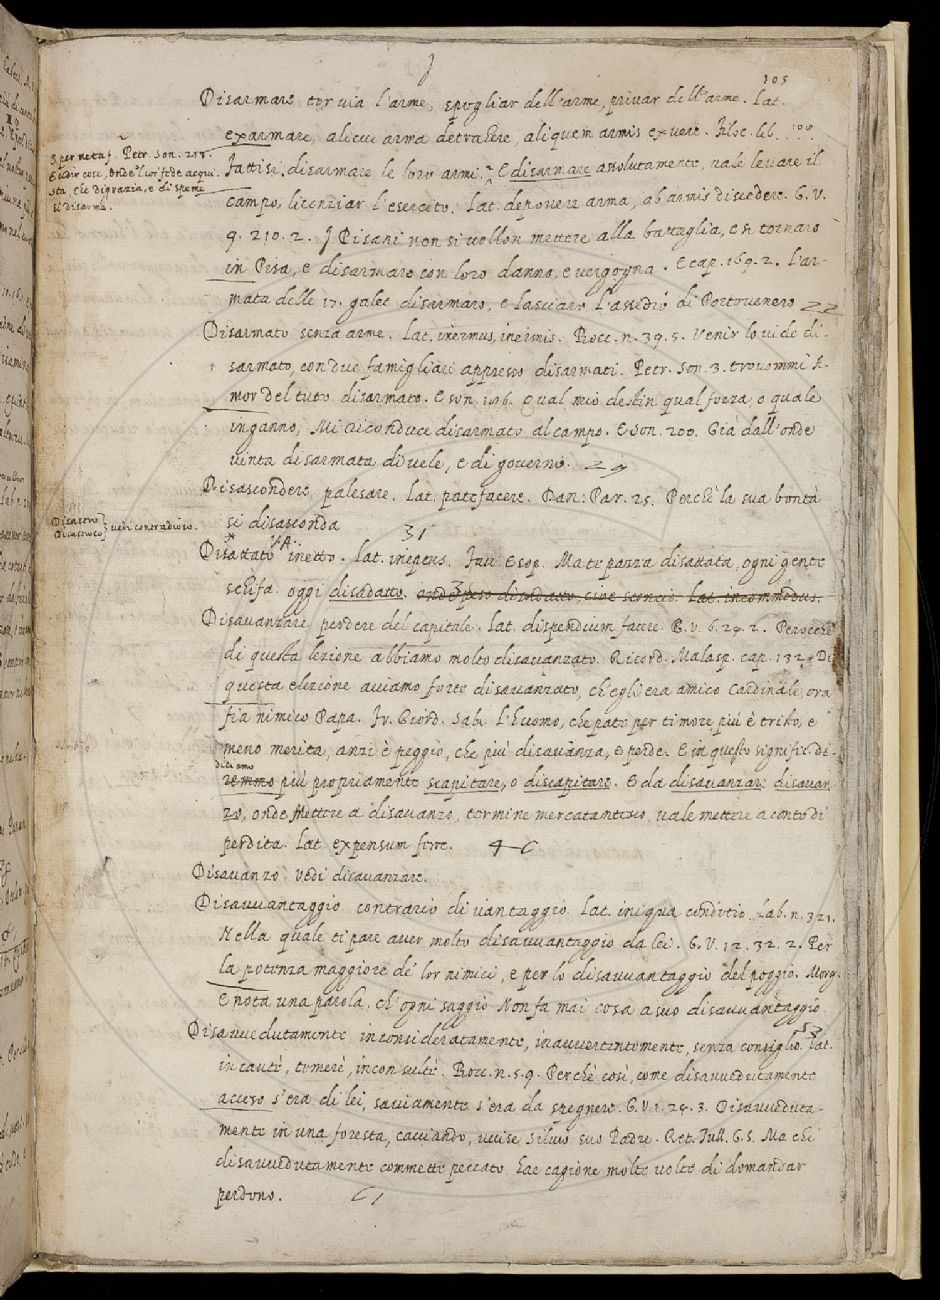 J
105
Disarmare tor via l'arme, spogliar dell'arme, privar dell'arme. Lat.
exarmare, alicui arma detrahere, aliquem armis exuere. lib. 100.
fattisi disarmare le loro armi. E disarmare assolutamente, vale levare il
campo, licenziar l'esercito. Lat. deponere arma, ab armis discedere. G. V.
9. 210. 2. I Pisani non si vollon mettere alla battaglia, e si tornaro
in Pisa, e disarmaro con loro danno, e vergogna. E cap. 169. 2. L'ar-
mata delle 17. galee disarmaro, e lasciaro l'assedio di Portovenero 22
§ per metaf. Petr. Son.
E udir cose, onde 'l cor fede acqui-
sta, che di gioia, e di speme
si disarma.
Disarmato senza arme. Lat. inermus, inermis. Bocc. n. 39. 5. Venir lo vide di-
sarmato, con due famigliari appresso disarmati. Petr. Son. 3. trovommi A-
mor del tutto disarmato. E son. Qual mio destin qual forza, o quale
inganno, Mi riconduce disarmato al campo. E Son. 200. Già dall'onde
vinta disarmata di vele, e di governo. 29
Disascondere palesare. Lat. patefacere. Dan: Par. 25. Perchè la sua bontà
si disasconda 31
Disastro
Disastroso } vedi contradioso.
Disattato inetto. Lat. ineptus. Fav. Esop. Matr panza disattata, ogni gente
schifa. oggi disadatto. onde peso disadatto, cioè sconcio. Lat. incommodus.
Disavanzare perdere del capitale. Lat. dispendium facere. G. V. 6. 24. 2. Perocchè
di questa lezione abbiamo molto disavanzato. Ricord. Malasp. cap. 132. Di
questa elezione aviamo forte disavanzato, ch'egli era amico Cardinale, ora
fia nimico Papa. Fr. Giord. Salv. L'huomo, che pate per timore, più è tristo, e
meno merita, anzi è peggio, che più disavanza, e perde. E in questo signific. di-
diciamo
remmo più propriamente scapitare, o discapitare. E da disavanzare disavan-
zo, onde Mettere a disavanzo, termine mercatantesco, vale mettere a conto di
perdita. Lat. expensum ferre. 40
Disavanzo vedi disavanzare.
Disavvantaggio contrario di vantaggio. Lat. iniqua conditio. Lab. n. 321.
Nella quale ti pare aver molto disavvantaggio da lei. G. V. 12. 32. 2. Per
la potenza maggiore de' lor nimici, e per lo disavvantaggio del poggio. Morg.
E nota una parola, ch'ogni saggio Non fa mai cosa a suo disavvantaggio. 53
Disavvedutamente inconsideratamente, inavvertentemente, senza consiglio. Lat.
incautè, temerè, inconsultè. Bocc. n. 5. 9. Perchè così, come disavvedutamente
acceso s'era di lei, saviamente s'era da spegnere. G. V. 1. 24. 3. Disavveduta-
mente in una foresta, cacciando, uccise Silvio suo Padre. Ret. Tull. G. S. Ma chi
disavvedutamente commette peccato, hae cagione molte volte di domandar
perdono. 61